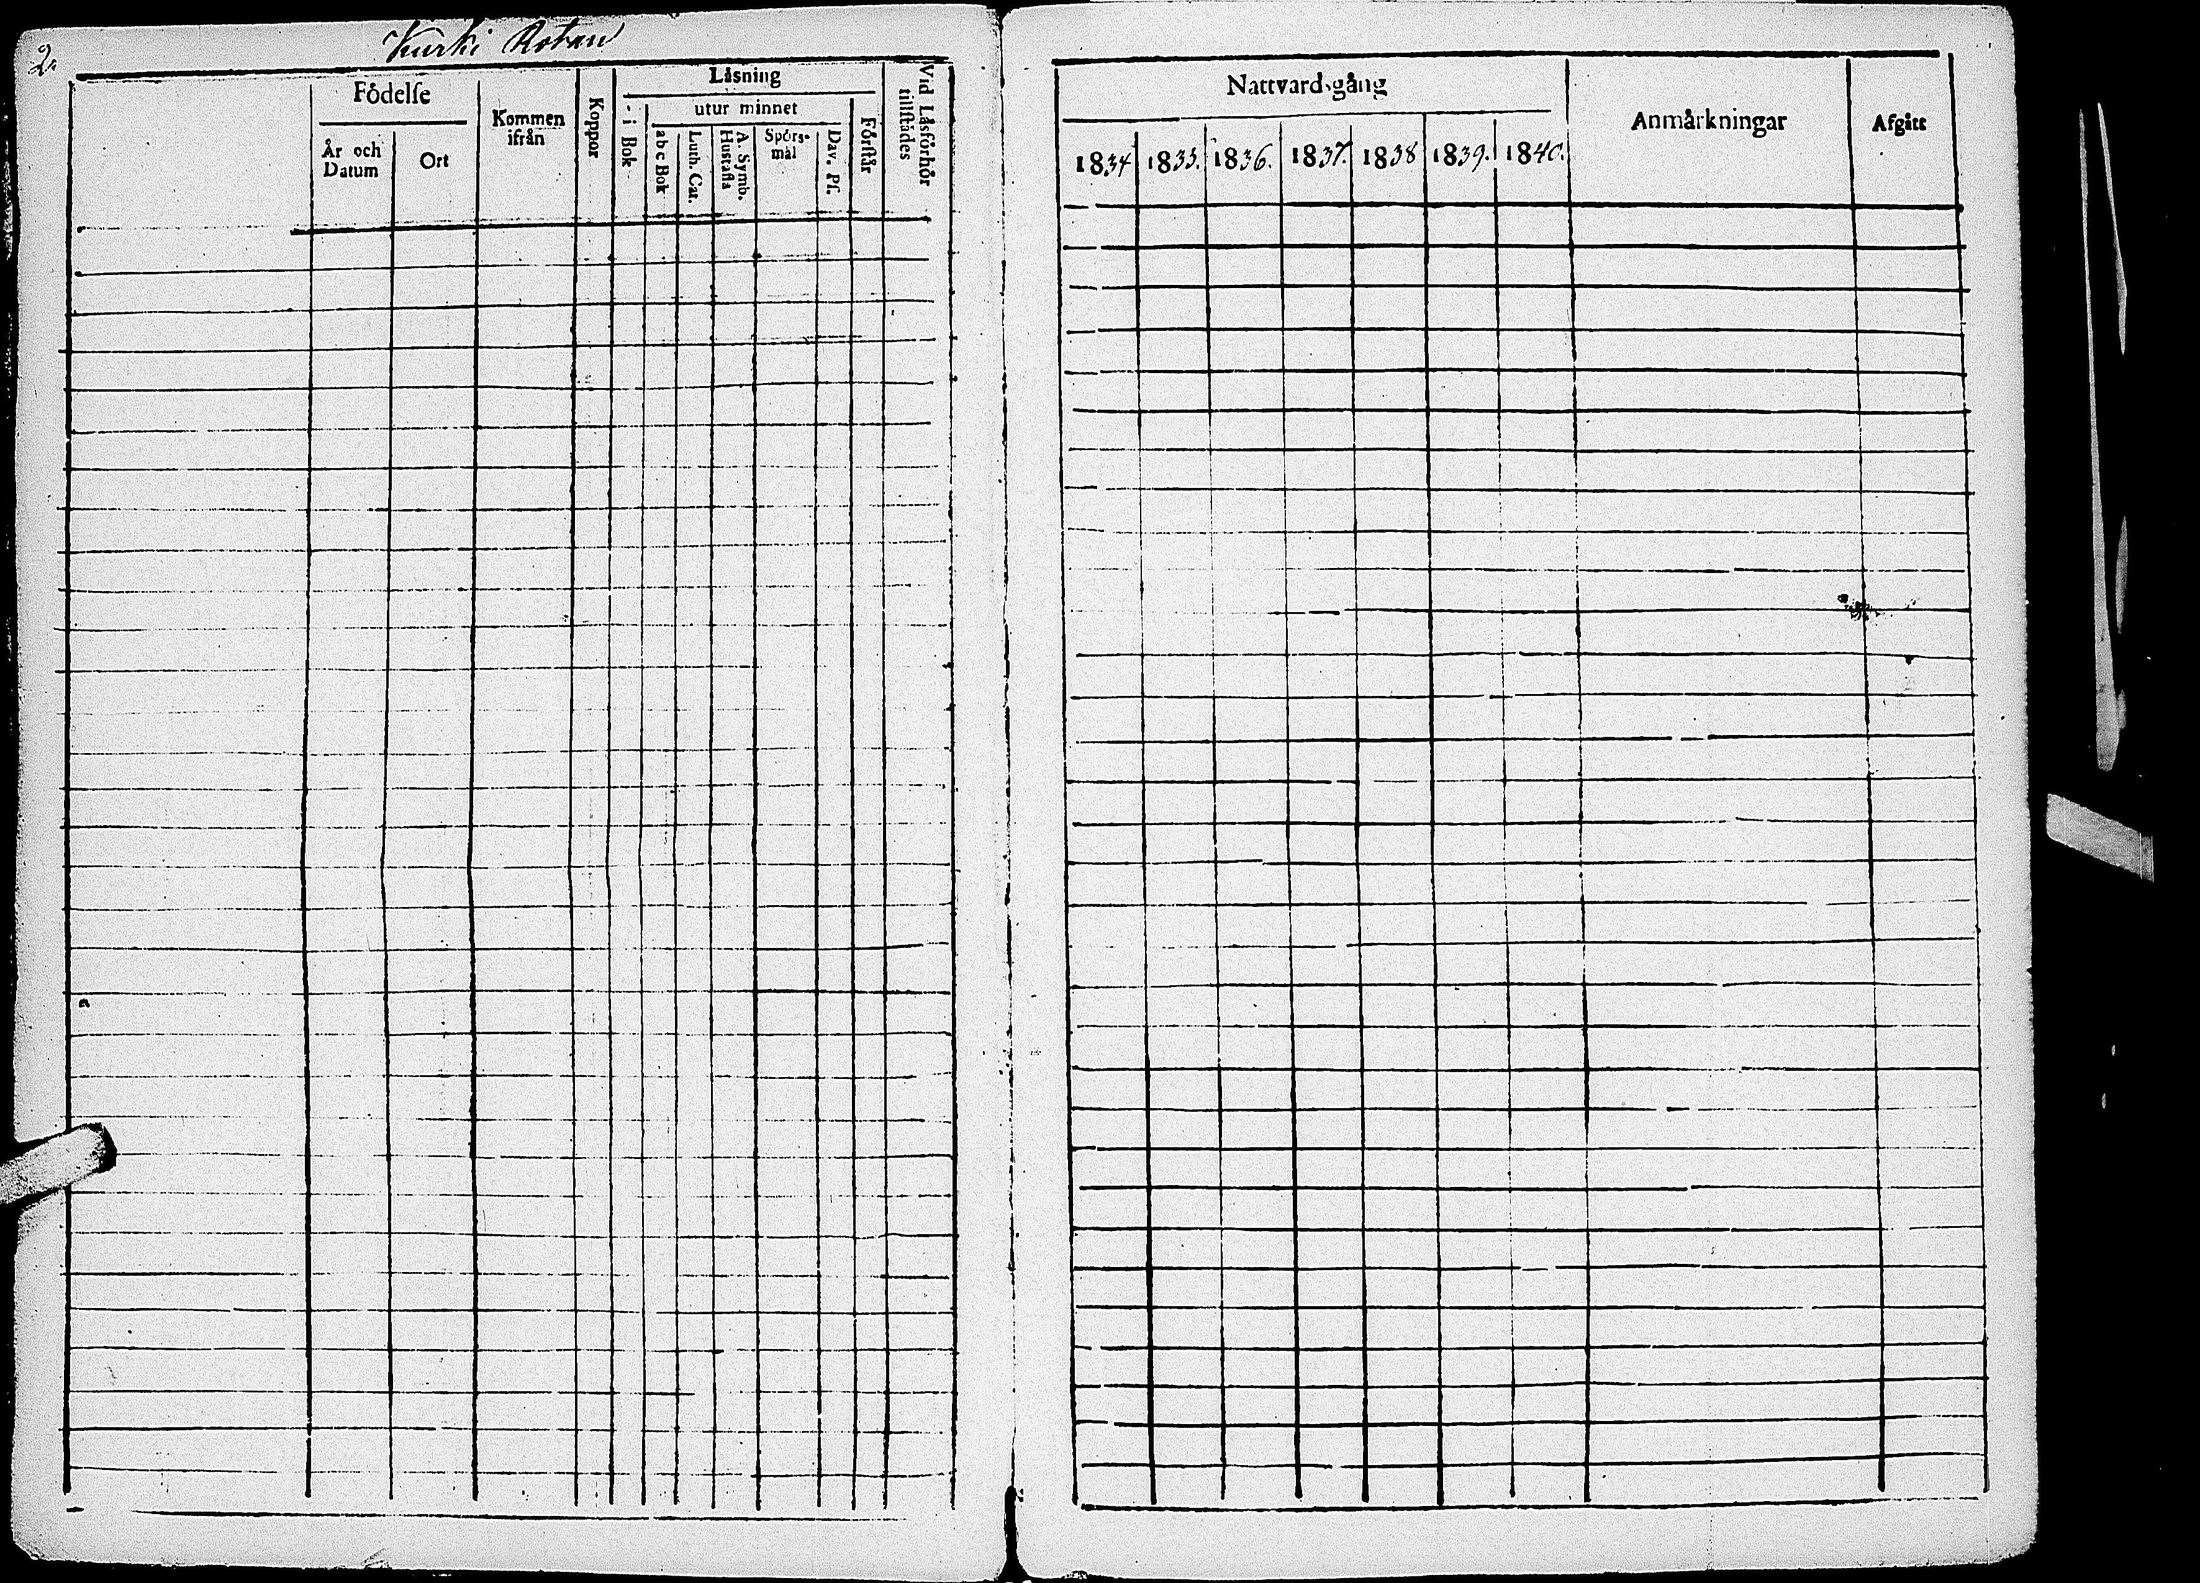 2.
Kurki Rotan
Födelse
År och Datum
Ort
Kommen ifrån
Koppor
Läsning
i Bok
utur minnet
abc Bok
Luth. Cat.
A. Symb. Hustafla
Spörs-mål
Dav. Ps.
Förstår
Vid Läsförhör tillstädes
Nattvardsgång
1834 1835. 1836. 1837. 1838 1839. 1840.
Anmärkningar
Afgått